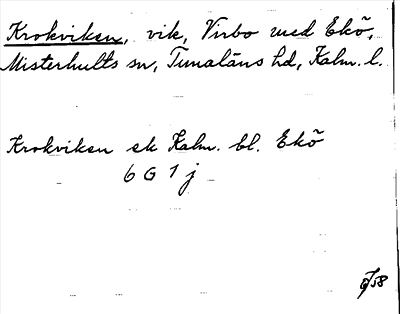 Krokviken, vik, Virbo med Ekö,
Misterhults sn, Tunaläns hd, Kalm. l.
Krokviken ek Kalm. bl. Ekö
6 G 1 j
/58